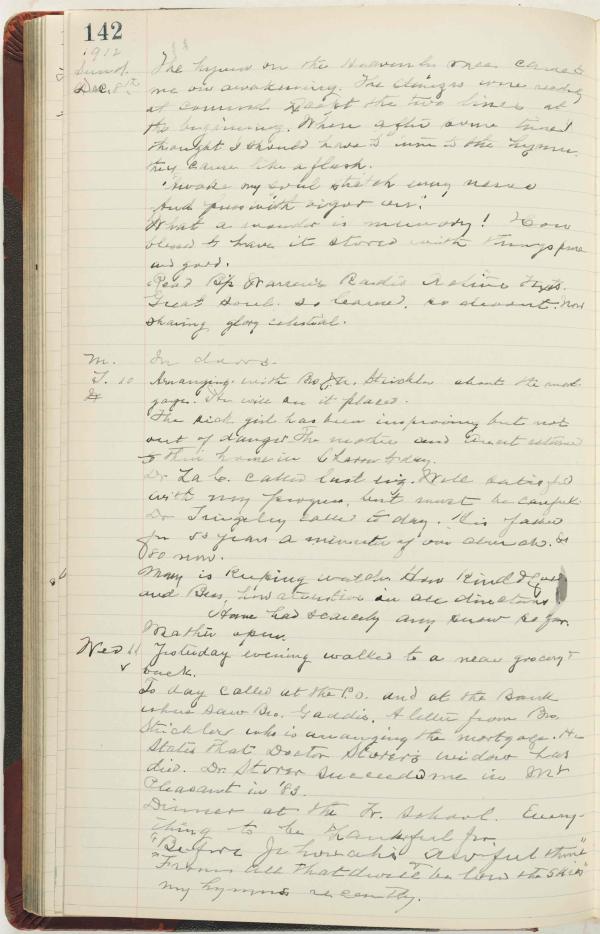 142
1912
Sund. The hymn on the Heavenly race came to
Dec. 8th me on awakening. The
at command except the two lines at
the beginning. When after some time I
thought I should have to turn to the hymn
they came like a flash.
"Awake my soul stretch every nerve
And press with vigor on."
What a wonder is memory! How
blessed to have it stored with things pure
and good.
Read Bp Warren's
Great soul. so learned, so devout. Now
sharing glory celestial.
M. In doors.
T. 10 Arranging with Bro. Stickler about the mort
gage. He will on it placed.
The sick girl has been improving but not
out of danger. The mother and Aunt returned
to their home in to day.
Dr. La Co. called last evg. Well satisfied
with my progress, but must be careful.
Dr Tingeley called to day. His father
for 50 years a minister of our church. is
80 now.
Mary is keeping watch. How kind & good
and Bess, how attentive in all directions
Have had scarcely any snow so far.
Weather open.
Wed 11 Yesterday evening walked to a near grocery &
back.
To day called at the P.O. and at the Bank
where saw Bro. Gaddis. A letter from Bro.
Stickler who is arranging the mortgage. He
states that Doctor Storer's widow has
died. Dr. Storer succeeded me in Mt
Pleasant in '83.
Dinner at the Tr. School. Every-
thing to be thankful for.
"Before Jehovah's awful throne"
"From all that dwell below the skies"
my hymns recently.